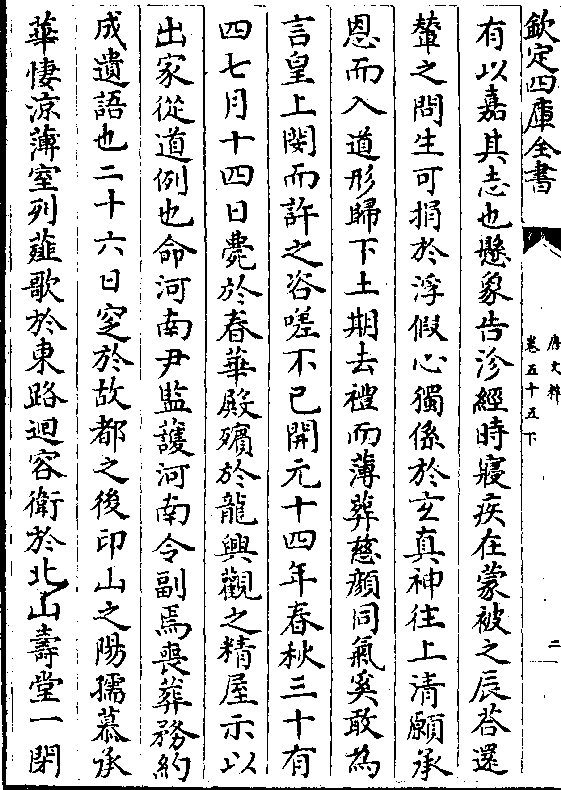 欽定四庫全書
唐文粹
卷五十五下
二
有以嘉其志也懸象告沴經時寢疾在蒙被之辰荅還
輦之問生可捐於浮假心獨係於玄真神往上清願承
恩而入道形歸下土期去禮而薄葬慈顔同氣奚敢為
言皇上閔而許之咨嗟不已開元十四年春秋三十有
四七月十四日薨於春華殿殯於龍興觀之精屋示以
出家從道例也命河南尹監護河南令副焉喪葬務約
成遺語也二十六日窆於故都之後卬山之陽孺慕承
華悽涼薄室列薤歌於東路迴容衛於北山壽堂一閉